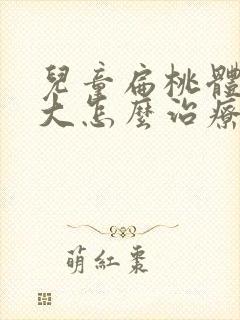 兒童扁桃體
大怎麼治療
萌紅棗